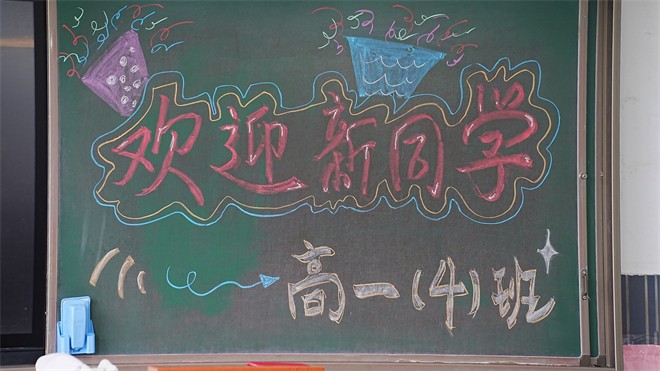 欢迎新同学
高一(4)班